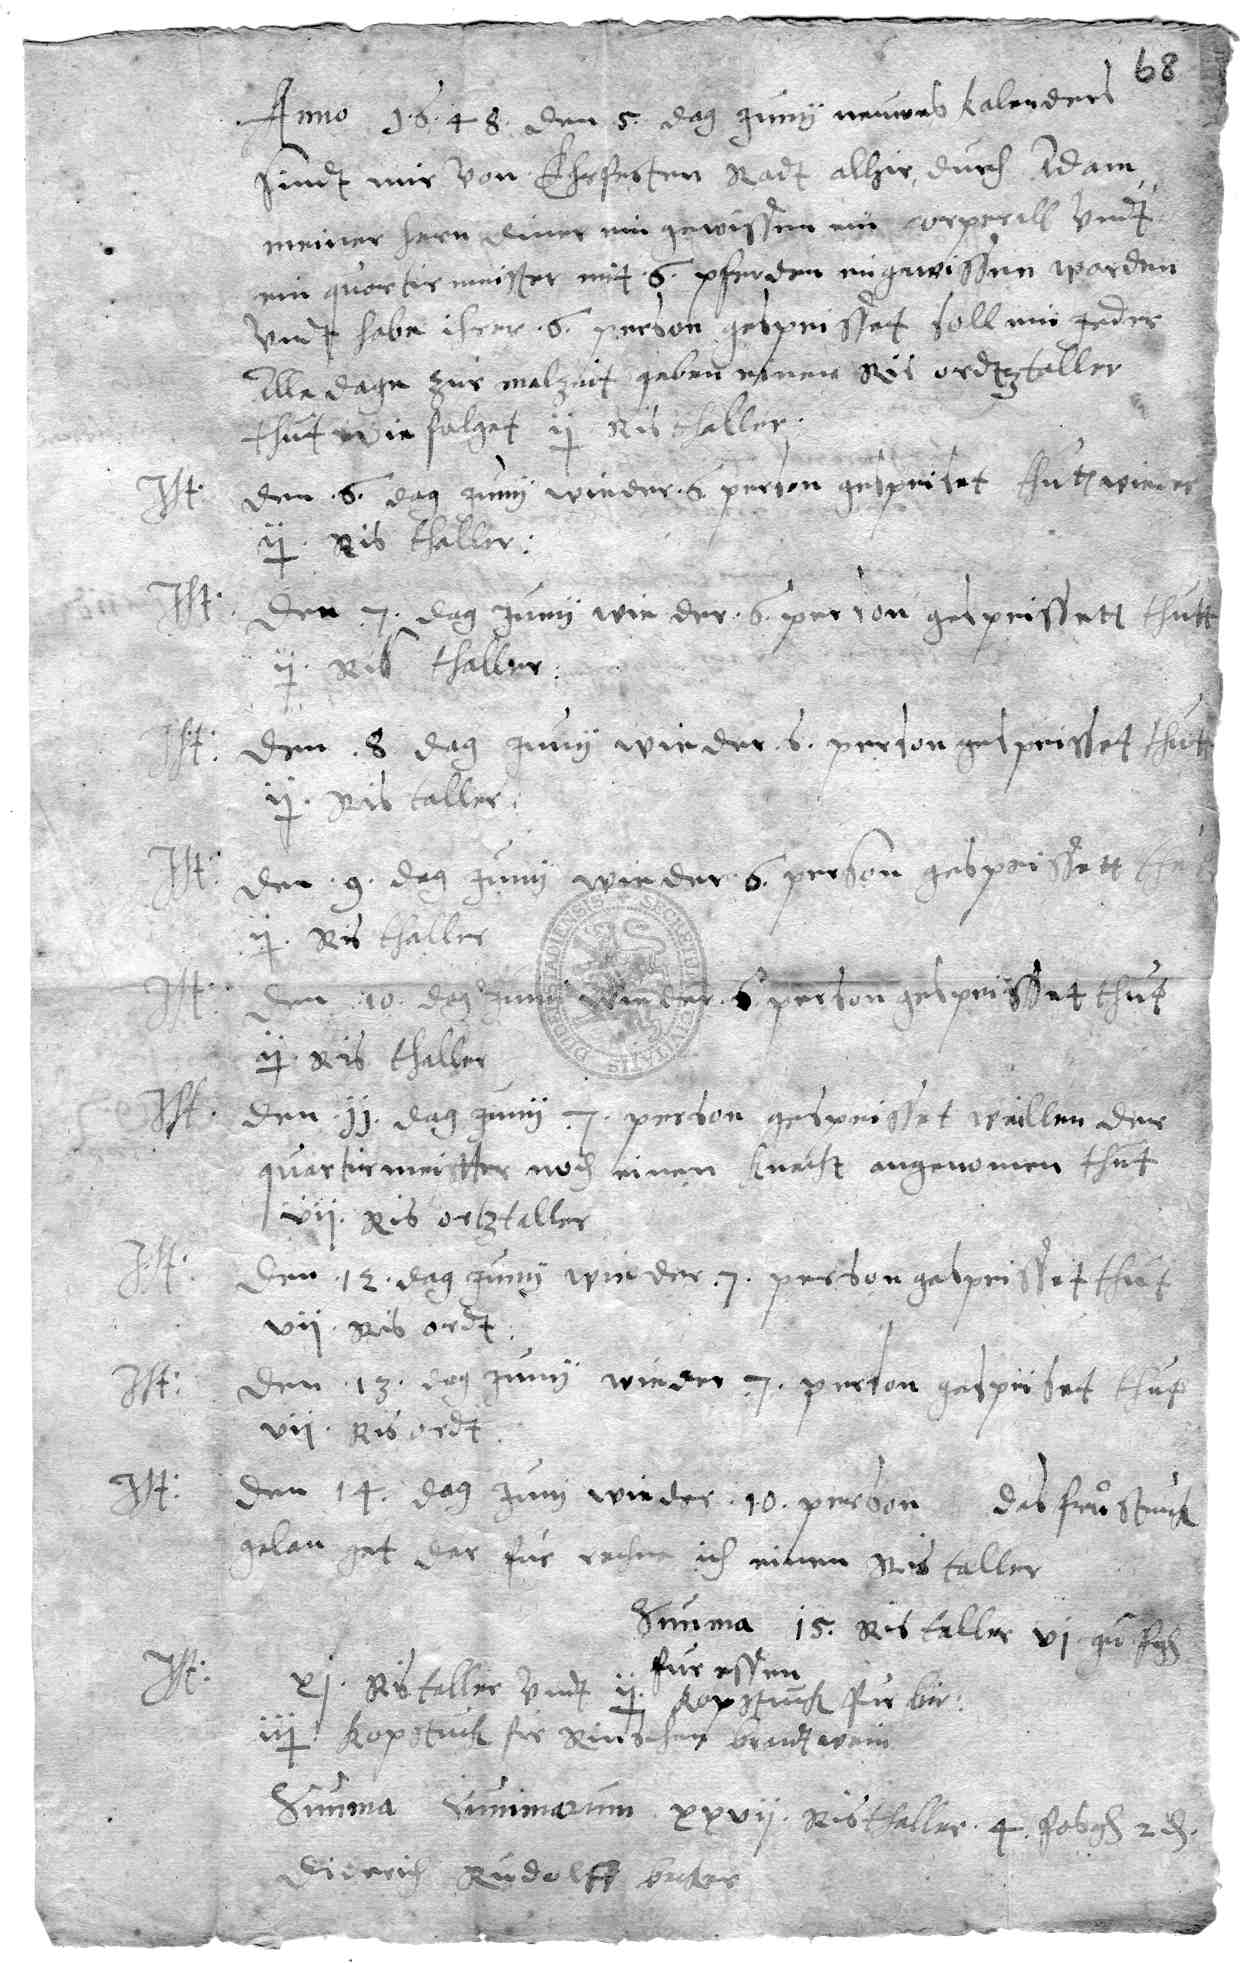 68
Anno 1.6.48. den 5. dag Junij neuwes kalenders
sindt mir von Ehrfesten Radt alhir, durch Adam
meiner hern diner ein gewissen ein Corperall vndt
ein quartirmeister mit .6. pferden ingewissen worden
vndt habe ihrer .6. person gespeisset soll mir jeder
Alle dage zur malzeit geben einen Ris ordtztaller
thut wie folget ij Ris thaller.
Jtt. den .6. dag Junij wieder .6 person gespeiset thutt wieder
ij. Ris thaller:
Jtt. den 7. dag Junij wieder .6. person gespeissett thutt
ij. Ris thaller:
Jtt: den .8 dag Junij wieder .6. person gespeisset thutt
ij. Ris taller:
Jtt: den .9. dag Junij wieder .6. person gespeissett
ij. Ris thaller
Jtt: den 10. dag Junij wieder .6 person gespeisset thut
ij. Ris thaller
Jtt. den .11. dag Junij 7. person gespeisset weillen der
quartirmeister noch einen knecht angenomen thut
vij. Ris ortztaller
Jtt: den .12. dag Junij wieder .7. person gespeisset thut
vij. Ris ordt.
Jtt: den .13. dag Junij wieder .7. person gespeiset thut
vij. Ris ordt.
Jtt: den 14. dag Junij wieder .10. person das frustuck
der fur rechne ich einen Ris taller
Summa 15. Ris taller vj
fur essen
Jtt: xj. Ristaller vndt ij. kopstuck fur bir:
iij kopstuck fir Rinschen brandtwein
Summa Summarum xxvij. Risthaller. 4. 2 d.
Diderich Rudolff
SECRETUM CIVITATIS DUDERSTADIENSIS